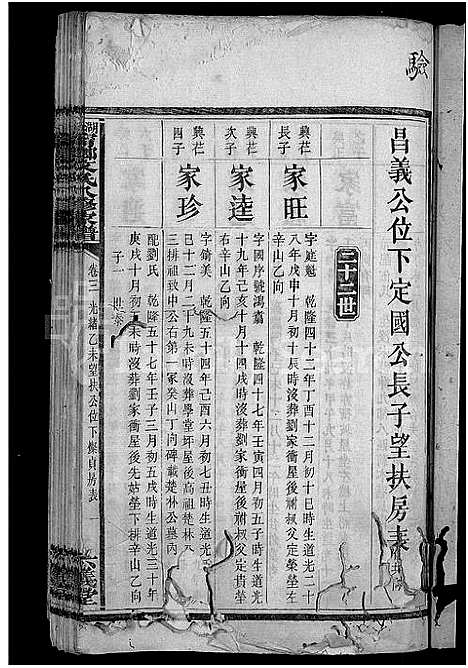 驗
昌義公位下定國公長子望扶房表
二十二世
興茌
長子
家旺
字庭魁 乾隆四十二年丁酉十二月初十巳時生道光二十
八年戊申十月初十辰時沒葬劉家衝屋後祔叔父定榮塋左
辛山乙向
興茌
次子
家達
字國序號鴻翥 乾隆四十七年壬寅四月初五子時生道光
十九年己亥十月十四戌時沒葬劉家衝屋後祔叔父定貴塋
右辛山乙向
興茌
四子
家珍
字錡美 乾隆五十四年己酉六月初七丑時生道光
十二月二十九未時沒葬學堂坪屋後高祖楚林公
三排祖致中公右第一冢癸山丁向碑載楚林公墓內
配劉氏 乾隆五十七年壬子三月初五戌時生道光三十年
庚戌十月初 未時沒葬劉家衝屋後先姑塋下排辛山乙向
子一 世泰
卷三 光緒乙未望扶公位下條貞房表 一
義堂